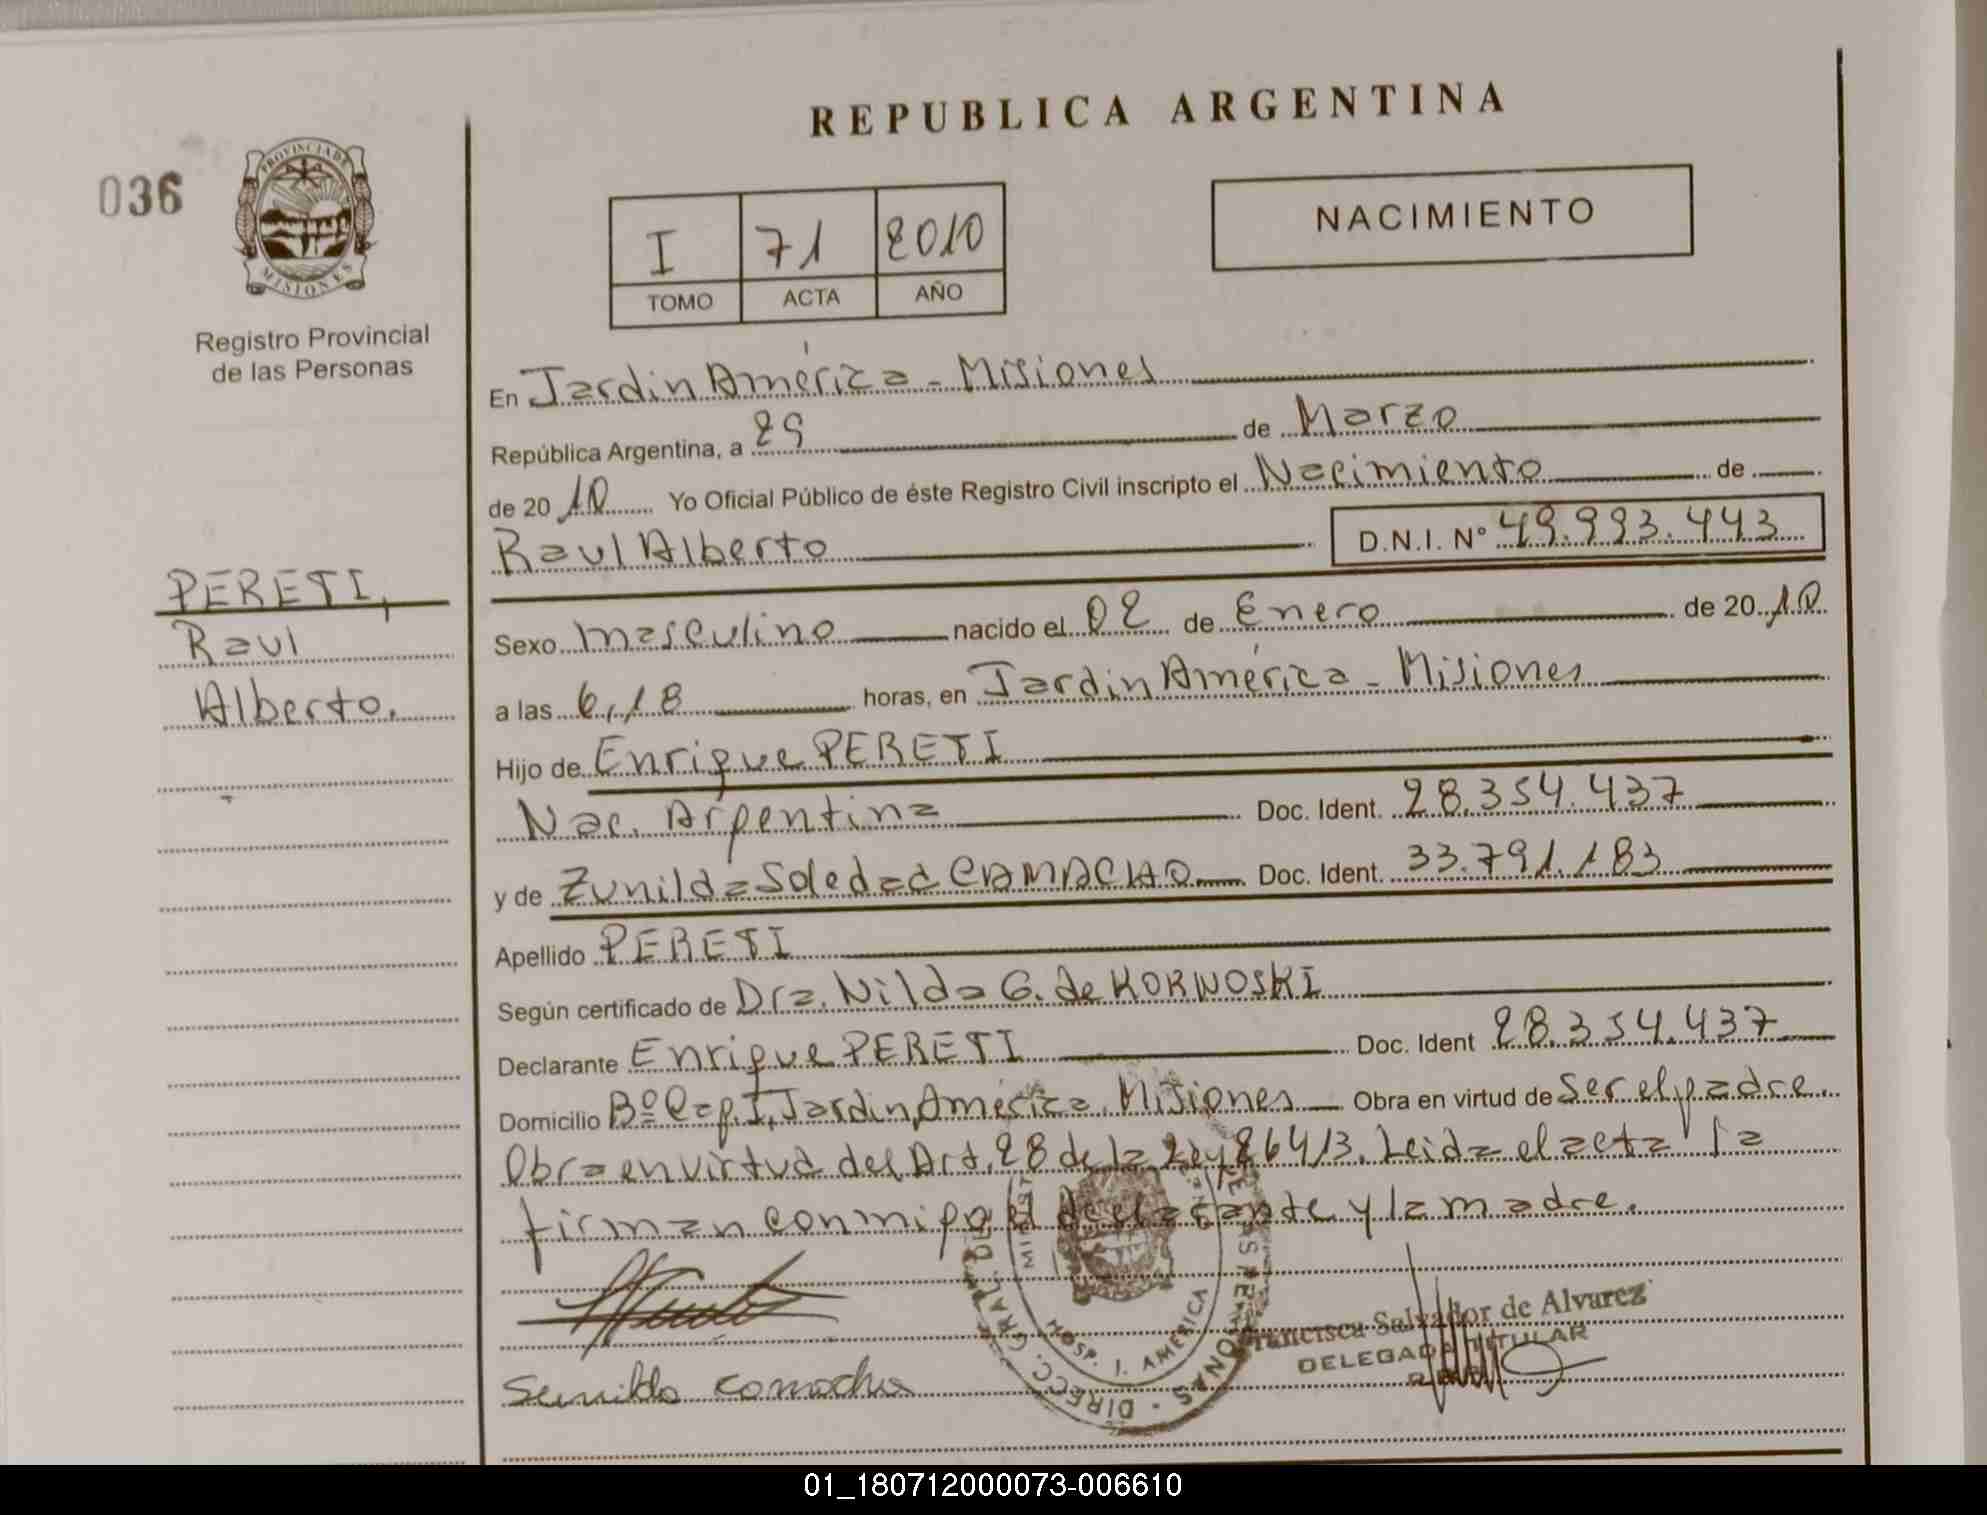 REPUBLICA ARGENTINA
036
PROVINCIA DE
MISIONES
Registro Provincial
de las Personas
I 71 2010
TOMO ACTA AÑO
NACIMIENTO
En Jardín América - Misiones
República Argentina, a 29 de Marzo
de 2010 Yo Oficial Público de éste Registro Civil inscripto el Nacimiento de
Raul Alberto D.N.I. Nº 49.993.443
PERETI,
Raul
Alberto.
Sexo masculino nacido el 02 de Enero de 2010
a las 6,18 horas, en Jardín América - Misiones
Hijo de Enrique PERETI
Nac. Argentina Doc. Ident. 28.354.437
y de Zunilda Soledad CAMACHO Doc. Ident. 33.791.183
Apellido PERETI
Según certificado de Dra. Nilda G. de KORNOSKI
Declarante Enrique PERETI Doc. Ident 28.354.437
Domicilio Bº Cap. I, Jardin América, Misiones Obra en virtud de Ser el padre.
Obra en virtud del Art. 28 de la Ley 2641/3. Leida el acta la
firman conmigo el declarante y la madre.
HOSP. J. AMERICA
DIRECC. GRAL. DE
PERSONAS
Francisca Salvador de Alvarez
DELEGADA TITULAR
01_180712000073-006610